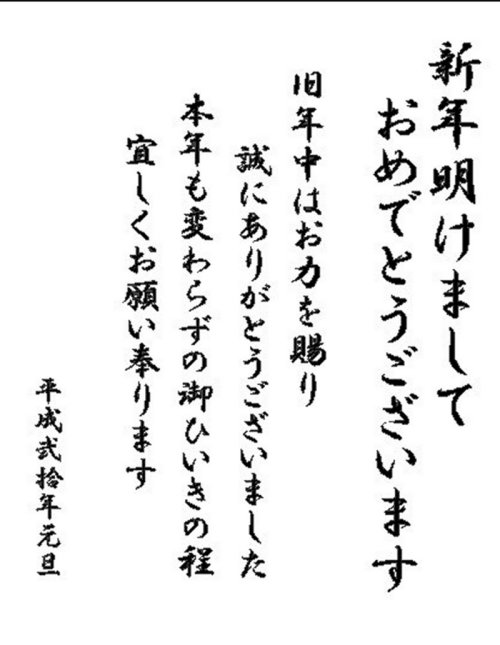 新年明けまして
おめでとうございます
旧年中はお力を賜り
誠にありがとうございました
本年も変わらずの御ひいきの程
宜しくお願い奉ります
平成弐拾年元旦